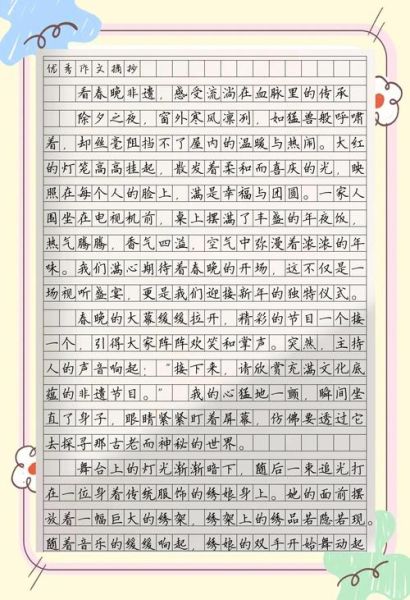 优秀作文摘抄
看春晚非遗，感受流淌在血脉里的传承
除夕之夜，窗外寒风凛冽，如猛兽般呼啸
着，却丝毫阻挡不了屋内的温暖与热闹。大红
的灯笼高高挂起，散发着柔和而喜庆的光，映
照在每个人的脸上，满是幸福与团圆。一家人
围坐在电视机前，桌上摆满了丰盛的年夜饭，
热气腾腾，香气四溢，空气中弥漫着浓浓的年
味。我们满心期待着春晚的开场，这不仅是一
场视听盛宴，更是我们迎接新年的独特仪式。
春晚的大幕缓缓拉开，精彩的节目一个接
一个，引得大家阵阵欢笑和掌声。突然，主持
人的声音响起：“接下来，请欣赏充满文化底
蕴的非遗节目。”我的心猛地一颤，瞬间坐
直了身子，眼睛紧紧盯着屏幕，仿佛要透过它
去探寻那古老而神秘的世界。
舞台上的灯光渐渐暗下，随后一束追光打
在一位身着传统服饰的绣娘身上。她的面前摆
放着一幅巨大的绣架，绣架上的绣品若隐若现。
随着音乐的缓缓响起，绣娘的双手开始舞动起